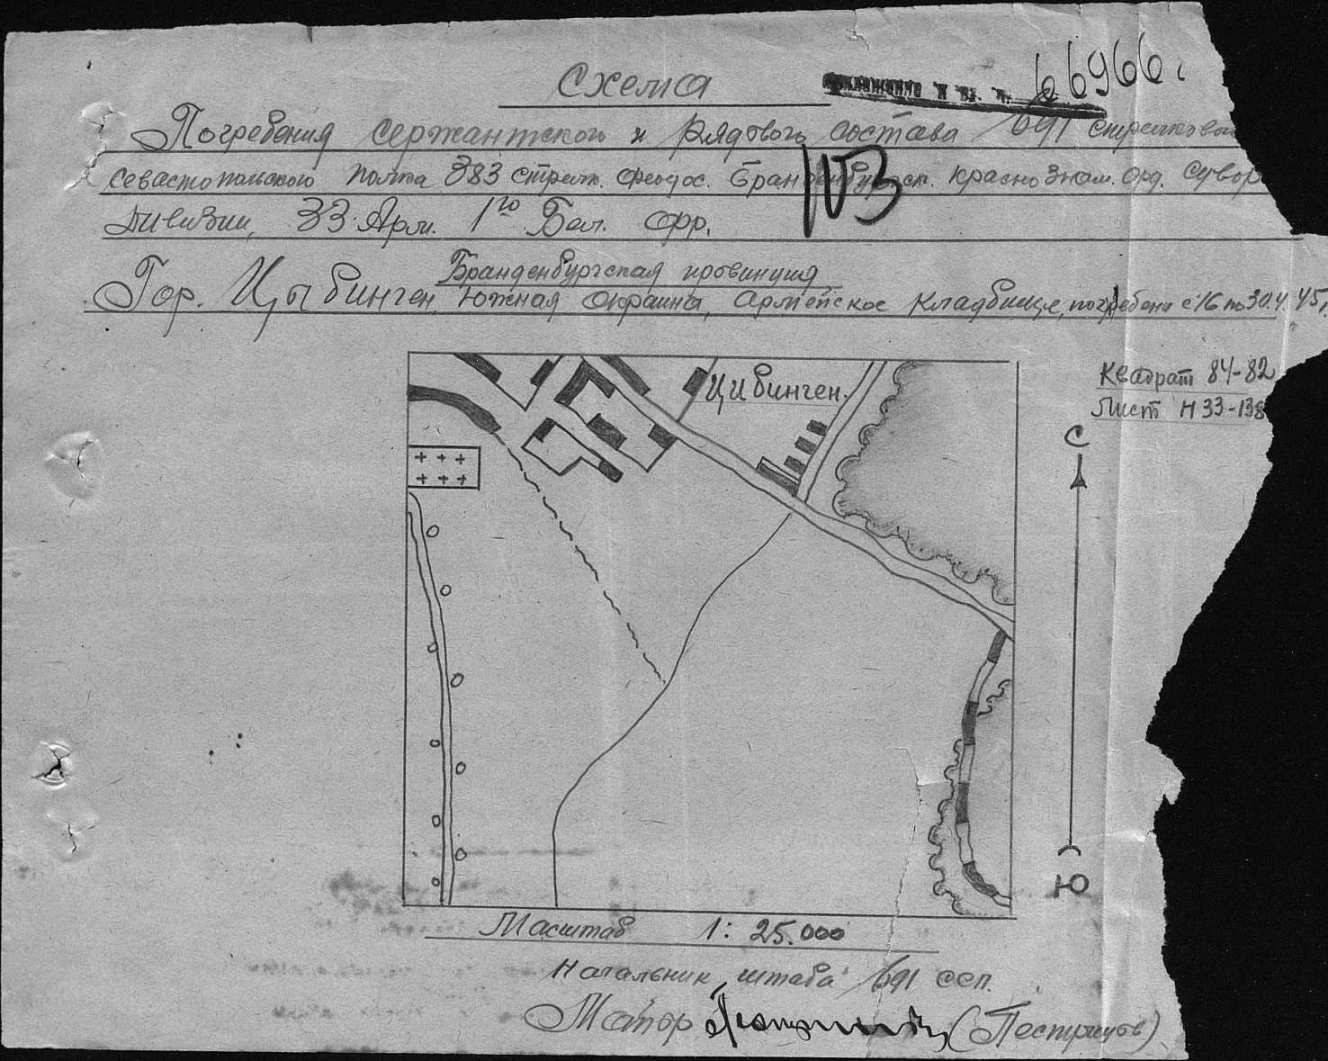 Схема
66966
Погребения сержантского и рядового состава 691 стрелковой
Севастопольского полка 383 стрелк. Феодос. Бранденбургск. Краснознам. Орд. Сувор
Дивизии, 33 Арм. 1го Бел. фр.
103
Бранденбургская провинция
Гор. Цыбинген, южная окраина, Армейское кладбище, погребены с 16 по 30.4.45г.
Квадрат 84-82
Лист Н 33-138
Цибинген.
С
Ю
Масштаб 1: 25.000
Начальник штаба 691 ссп.
Маиор (Пестрицов)